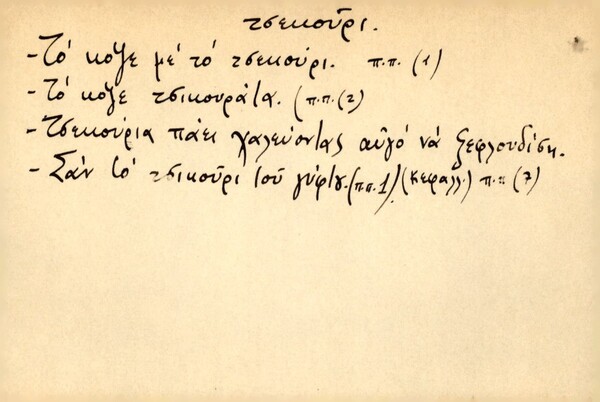 τσεκοῦρι.
- Τό κοψε μέ τό τσεκούρι. π.π. (1)
- Τό κοψε τσικουράτα. (π.π. (2)
- Τσεκούρια πάει χαλεύοντας αὐγό νά ξεφλουδίση.
- Σάν τό τσικοῦρι τοῦ γύφτου. (π.π. 1) (Κεφαλλ.) π.π. (7)